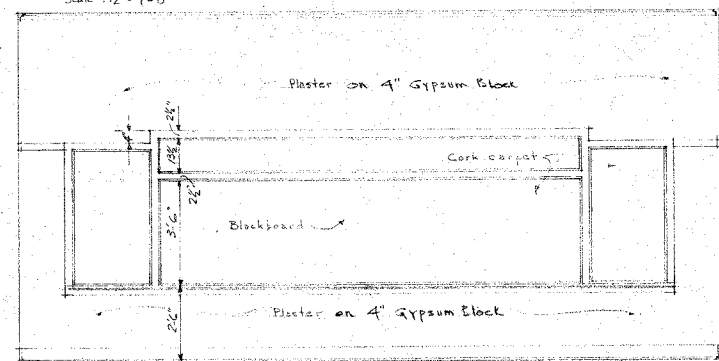 Plaster on 4" Gypsum Block
2½"
4"
13½"
Cork carpet
2½"
3'6"
Blackboard
2'6"
Plaster on 4" Gypsum Block